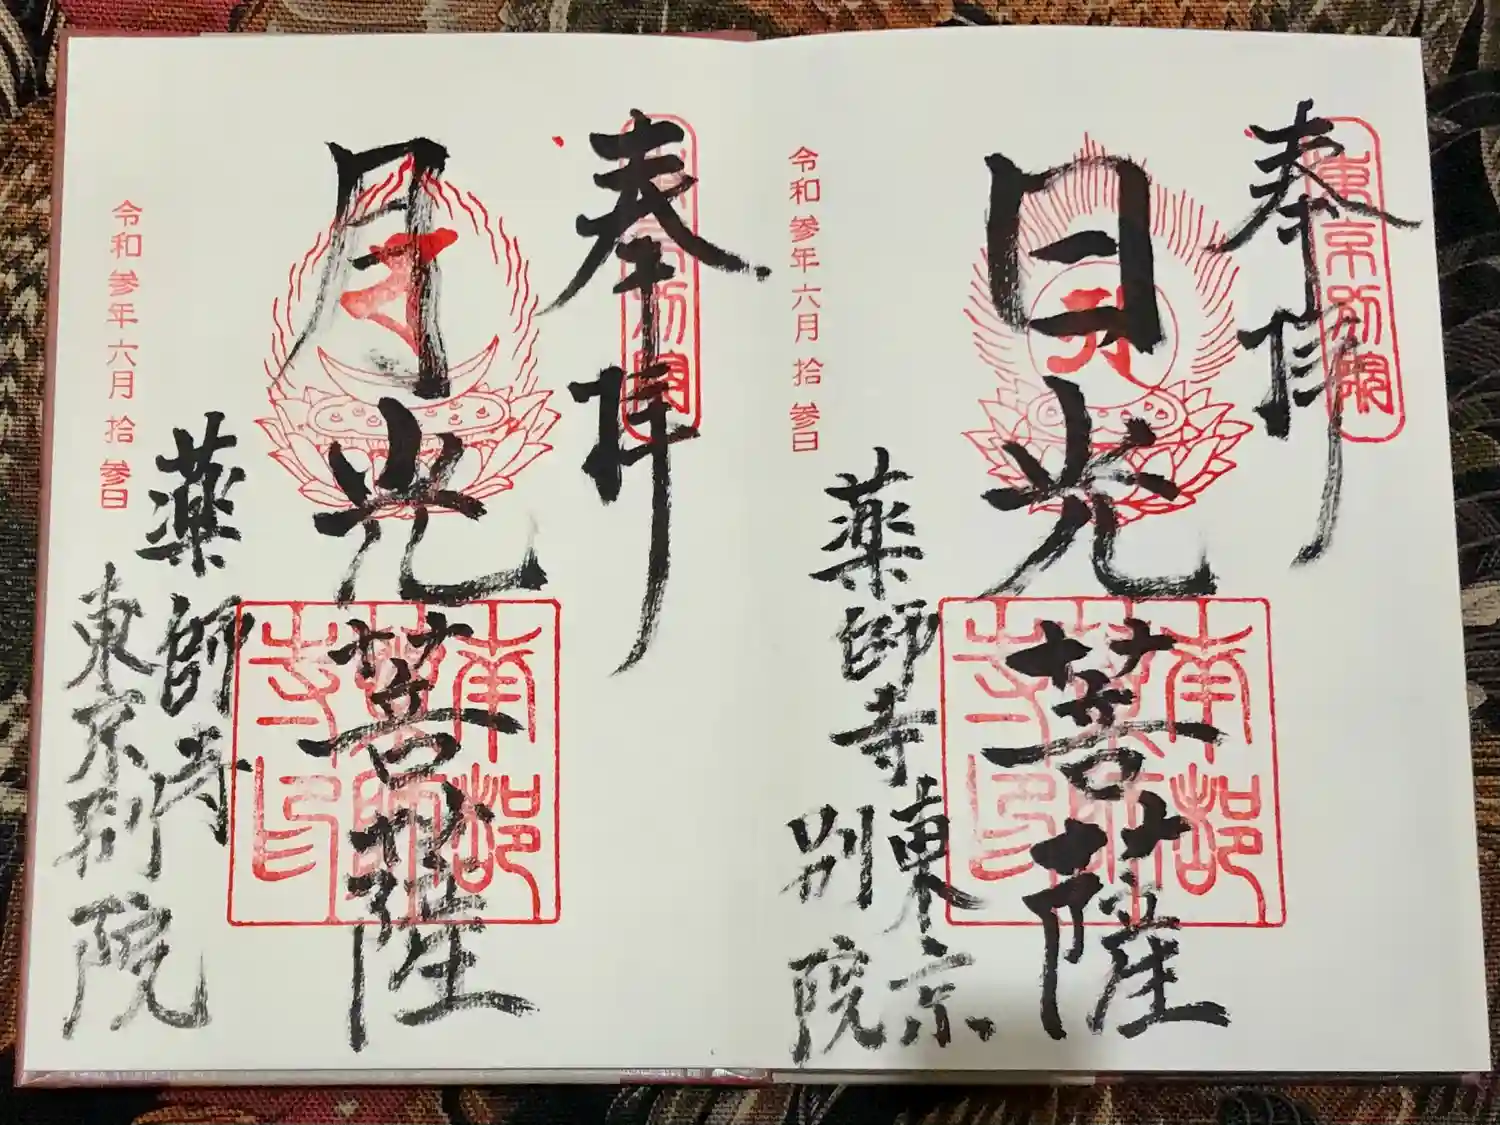 奉拝
東京別院
日光菩薩
南都
薬師
寺印
令和参年六月拾参日
薬師寺東京
別院
奉拝
東京別院
月光菩薩
南都
薬師
寺印
令和参年六月拾参日
薬師寺
東京別院